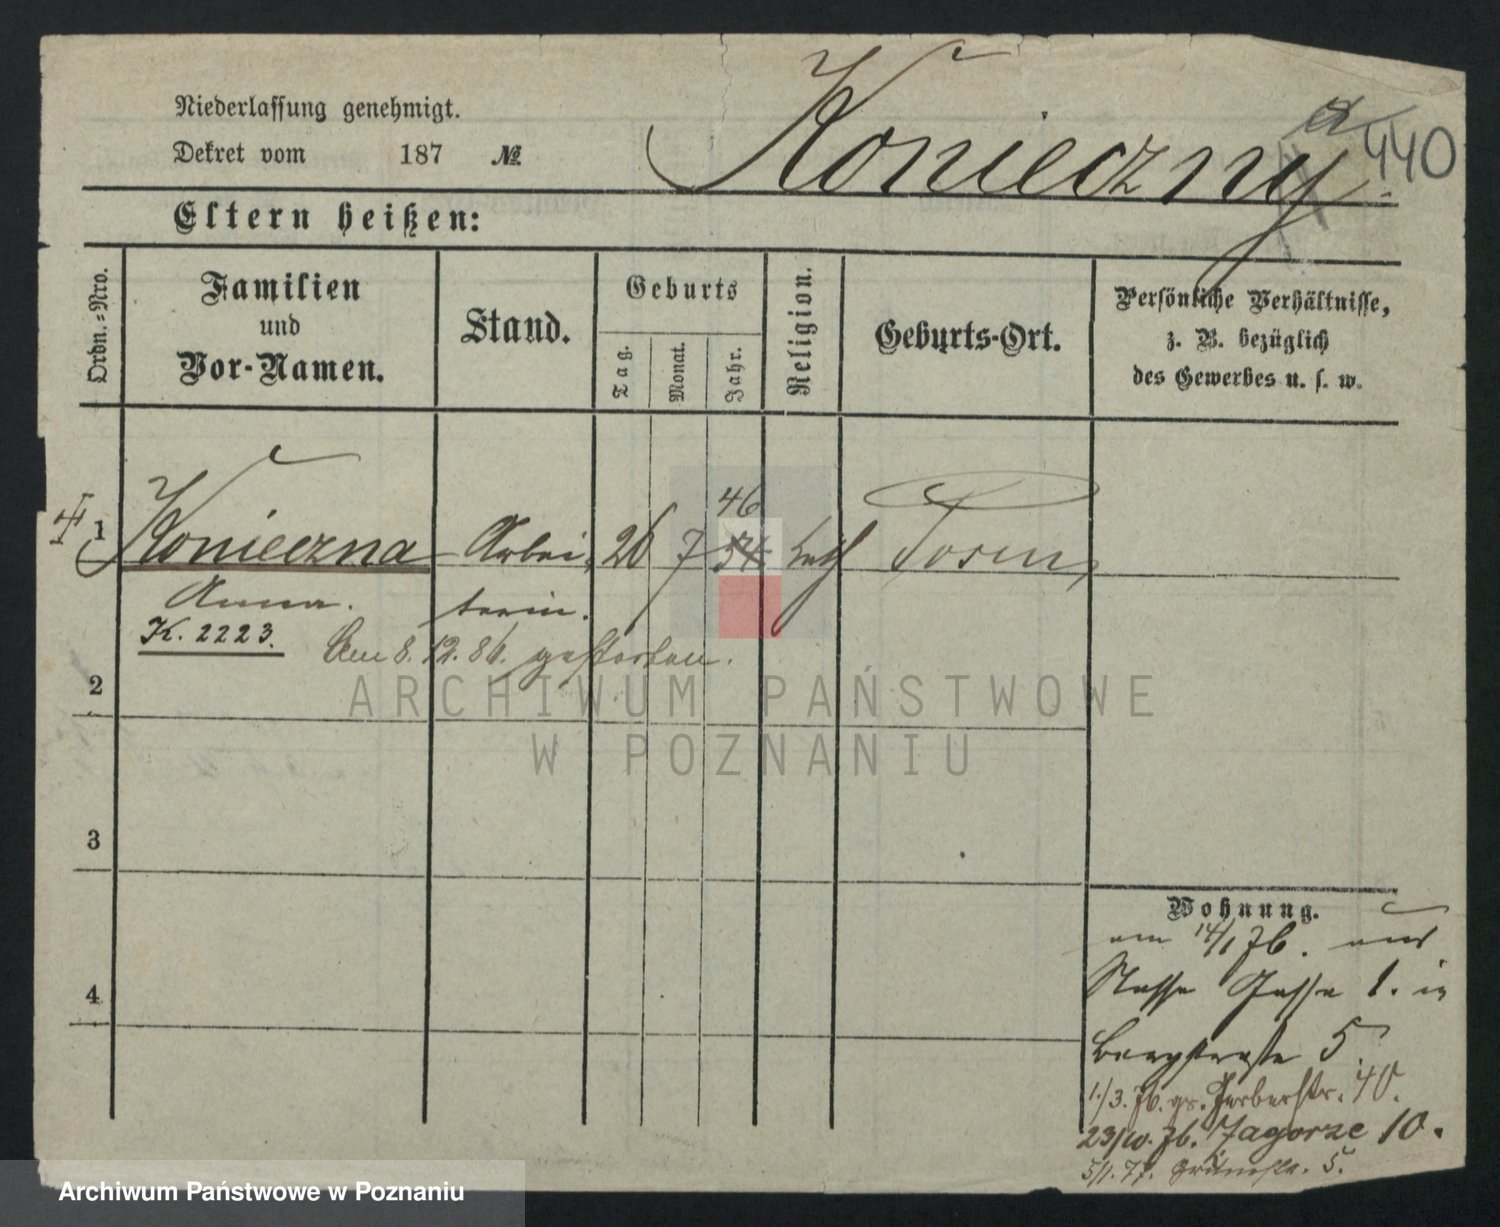 Niederlassung genehmigt.
Dekret vom 187 №
Konieczny
440
Eltern heißen:
Ordn.-Nro.
Familien
und
Vor-Namen.
Stand.
Geburts
Tag.
Monat.
Jahr.
Religion.
Geburts-Ort.
Persönliche Verhältnisse,
z. B. bezüglich
des Gewerbes u. s. w.
46
1 Konieczna Arbei- 26 7 54 kath Posen
Anna. terin.
K. 2223.
Am 8.12.86. gestorben.
2
3
4
Wohnung.
am 14/1 76. aus
Nasse Gasse 1. in
Bergstraße 5.
1./3. 76. gr. Gerberstr. 40.
23/10. 76. Zagorze 10.
5/1. 77. Grünestr. 5.
ARCHIWUM PAŃSTWOWE
W POZNANIU
Archiwum Państwowe w Poznaniu